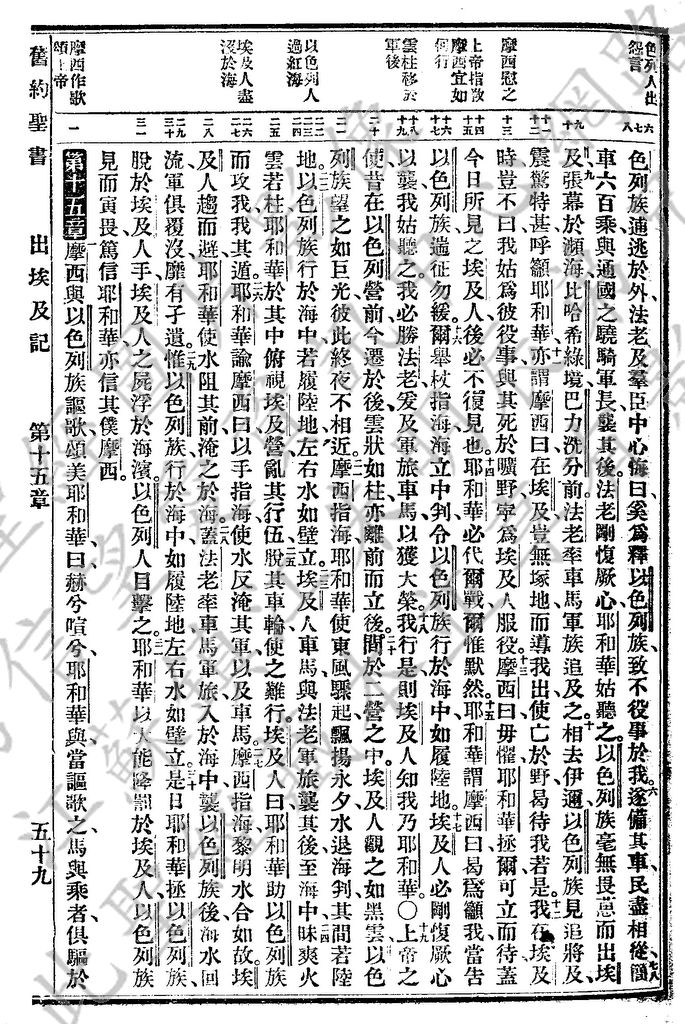 色列人出
怨言
摩西慰之
上帝指敎
摩西宜如
何行
雲柱移於
軍後
以色列人
過紅海
埃及人盡
沒於海
摩西作歌
頌上帝
六 七 八
九 十
十一 十二
十三
十四 十五
十六 十七
十八 十九
二十
二一
二二 二三 二四
二五
二六 二七
二八
二九 三十
三一
一
色列族逋逃於外法老及羣臣中心悔曰奚爲釋以色列族致不役事於我六遂備其車民盡相從簡
車六百乘與通國之驍騎軍長襲其後法老剛愎厥心耶和華姑聽之以色列族毫無畏葸而出埃
及張幕於瀕海比哈希綠境巴力洗分前法老率車馬軍族追及之十相去伊邇以色列族見追將及
震驚特甚呼籲耶和華十一亦謂摩西曰在埃及豈無塚地而導我出使亡於野曷待我若是十二我在埃及
時豈不曰我姑爲彼役事與其死於曠野寧爲埃及人服役十三摩西曰毋懼耶和華拯爾可立而待蓋
今日所見之埃及人後必不復見也十四耶和華必代爾戰爾惟默然十五耶和華謂摩西曰曷爲籲我當告
以色列族遄征勿緩十六爾舉杖指海海立中判令以色列族行於海中如履陸地十七埃及人必剛愎厥心
以襲我姑聽之我必勝法老爰及軍旅車馬以獲大榮十八我行是則埃及人知我乃耶和華〇十九上帝之
使昔在以色列營前今遷於後雲狀如柱亦離前而立後二十間於二營之中埃及人觀之如黑雲以色
列族望之如巨光彼此終夜不相近二一摩西指海耶和華使東風驟起飄揚永夕水退海判其間若陸
地二二以色列族行於海中若履陸地左右水如壁立二三埃及人車馬與法老軍旅襲其後至海中二四昧爽火
雲若柱耶和華於其中俯視埃及營亂其行伍二五脫其車輪使之難行埃及人曰耶和華助以色列族
而攻我我其遁二六耶和華諭摩西曰以手指海使水反淹其軍以及車馬二七摩西指海黎明水合如故埃
及人趨而避耶和華使水阻其前淹之於海二八蓋法老率車馬軍旅入於海中襲以色列族後海水回
流軍俱覆沒靡有孑遺二九惟以色列族行於海中如履陸地左右水如壁立三十是日耶和華拯以色列族
脫於埃及人手埃及人之屍浮於海濱以色列人目擊之三一耶和華以大能降罰於埃及人以色列族
見而寅畏篤信耶和華亦信其僕摩西
第十五章 一摩西與以色列族謳歌頌美耶和華曰赫兮喧兮耶和華與當謳歌之馬與乘者俱驅於
舊約聖書 出埃及記 第十五章 五十九